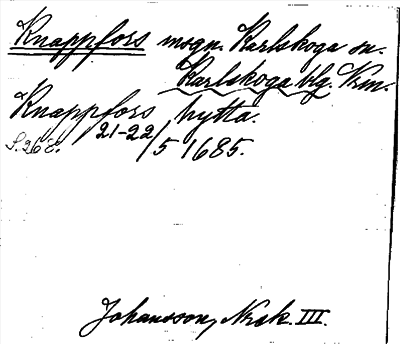 Knappfors msgn. Karlskoga sn.
Karlskoga blg. Vrm.
Knappfors hytta.
S. 268. 21-22/5 1685.
Johansson, Nksk. III.